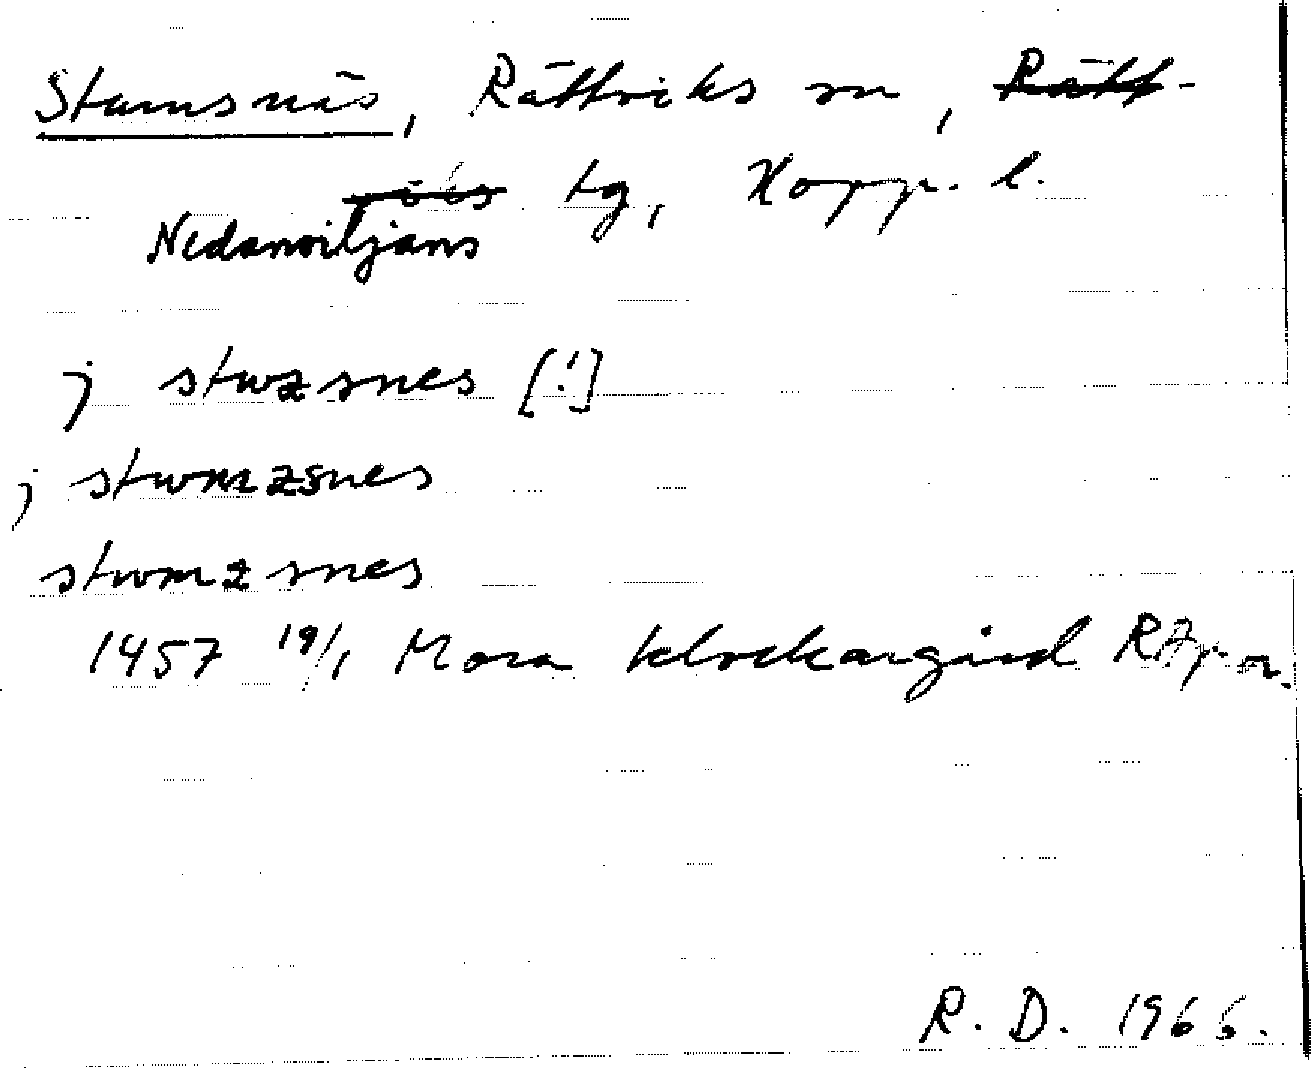 Stumsnäs, Rättviks sn, Rätt-
viks tg, Kopp. l.
Nedansiljans
j stwzsnes [!]
j stwmzsnes
stwmzsnes
1457 19/1 Mora klockargård RAp or.
R. D. 1966.